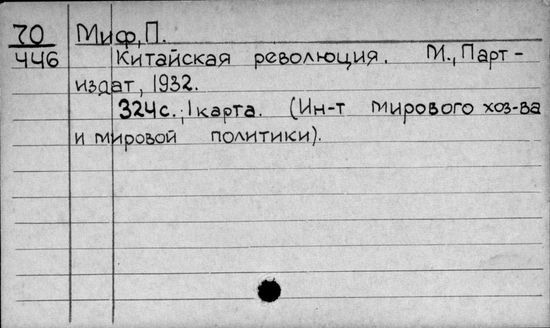 70 Миф, П.
446 Китайская революция. М., Парт-
издат, 1932.
324с.; 1 карта. (Ин-т мирового хоз-ва
и мировой политики).